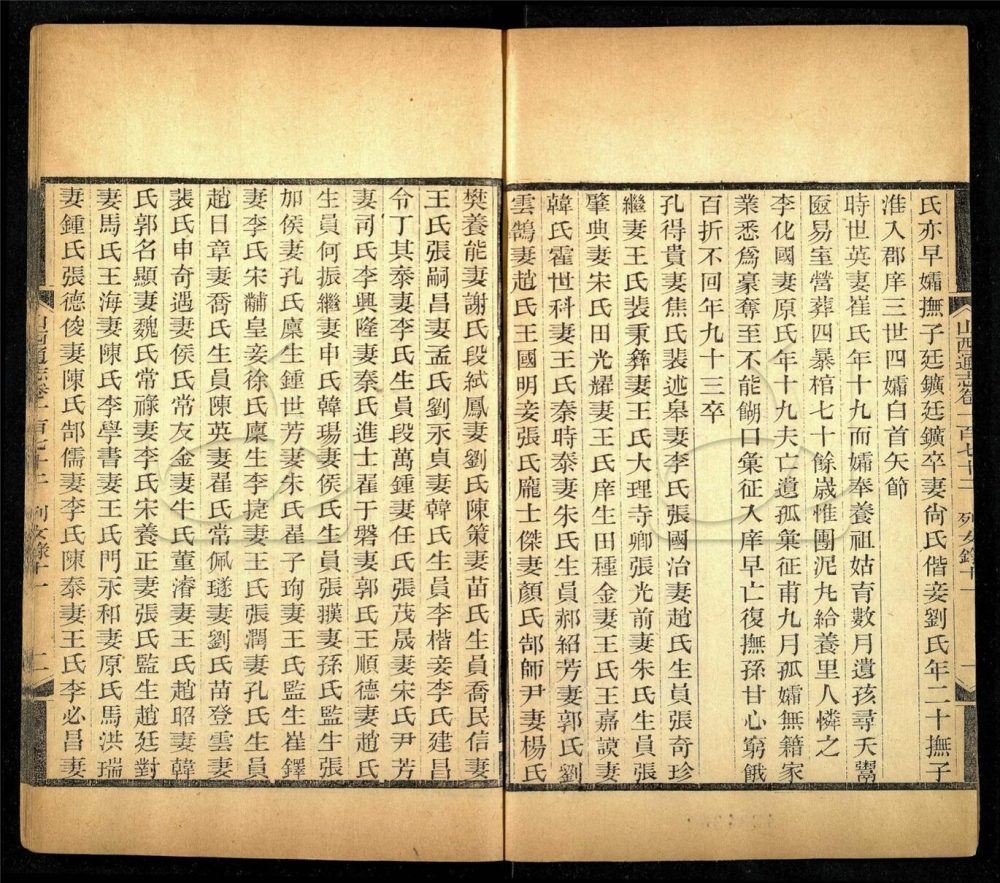 山西通志卷一百七十二 列女錄十一
氏亦早孀撫子廷鑛廷鑛卒妻尙氏偕妾劉氏年二十撫子
淮入郡庠三世四孀白首矢節
時世英妻崔氏年十九而孀奉養祖姑育數月遺孩尋夭鬻
匳易室營葬四暴棺七十餘歲惟團泥丸給養里人憐之
李化國妻原氏年十九夫亡遺孤彙征甫九月孤孀無籍家
業悉爲豪奪至不能餬口彙征入庠早亡復撫孫甘心窮餓
百折不回年九十三卒
孔得貴妻焦氏裴述皋妻李氏張國治妻趙氏生員張奇珍
繼妻王氏裴秉彝妻王氏大理寺卿張光前妻朱氏生員張
肇典妻宋氏田光耀妻王氏庠生田種金妻王氏王嘉謨妻
韓氏霍世科妻王氏秦時泰妻朱氏生員郝紹芳妻郭氏劉
雲鵠妻趙氏王國明妾張氏龐士傑妻顏氏郜師尹妻楊氏
樊養能妻謝氏段斌鳳妻劉氏陳策妻苗氏生員喬民信妻
王氏張嗣昌妻孟氏劉永貞妻韓氏生員李楷妾李氏建昌
令丁其泰妻李氏生員段萬鍾妻任氏張茂晟妻宋氏尹芳
妻司氏李興隆妻秦氏進士翟于磐妻郭氏王順德妻趙氏
生員何振繼妻申氏韓瑒妻侯氏生員張撰妻孫氏監生張
加侯妻孔氏廩生鍾世芳妻朱氏翟子珣妻王氏監生崔鐸
妻李氏宋黼皇妾徐氏廩生李捷妻王氏張潤妻孔氏生員
趙日章妻喬氏生員陳英妻翟氏常佩璲妻劉氏苗登雲妻
裴氏申奇遇妻侯氏常友金妻牛氏董濬妻王氏趙昭妻韓
氏郭名顯妻魏氏常祿妻李氏宋養正妻張氏監生趙廷對
妻馬氏王海妻陳氏李學書妻王氏門永和妻原氏馬洪瑞
妻鍾氏張德俊妻陳氏郜儒妻李氏陳泰妻王氏李必昌妻
山西通志卷一百七十二 列女錄十一 二